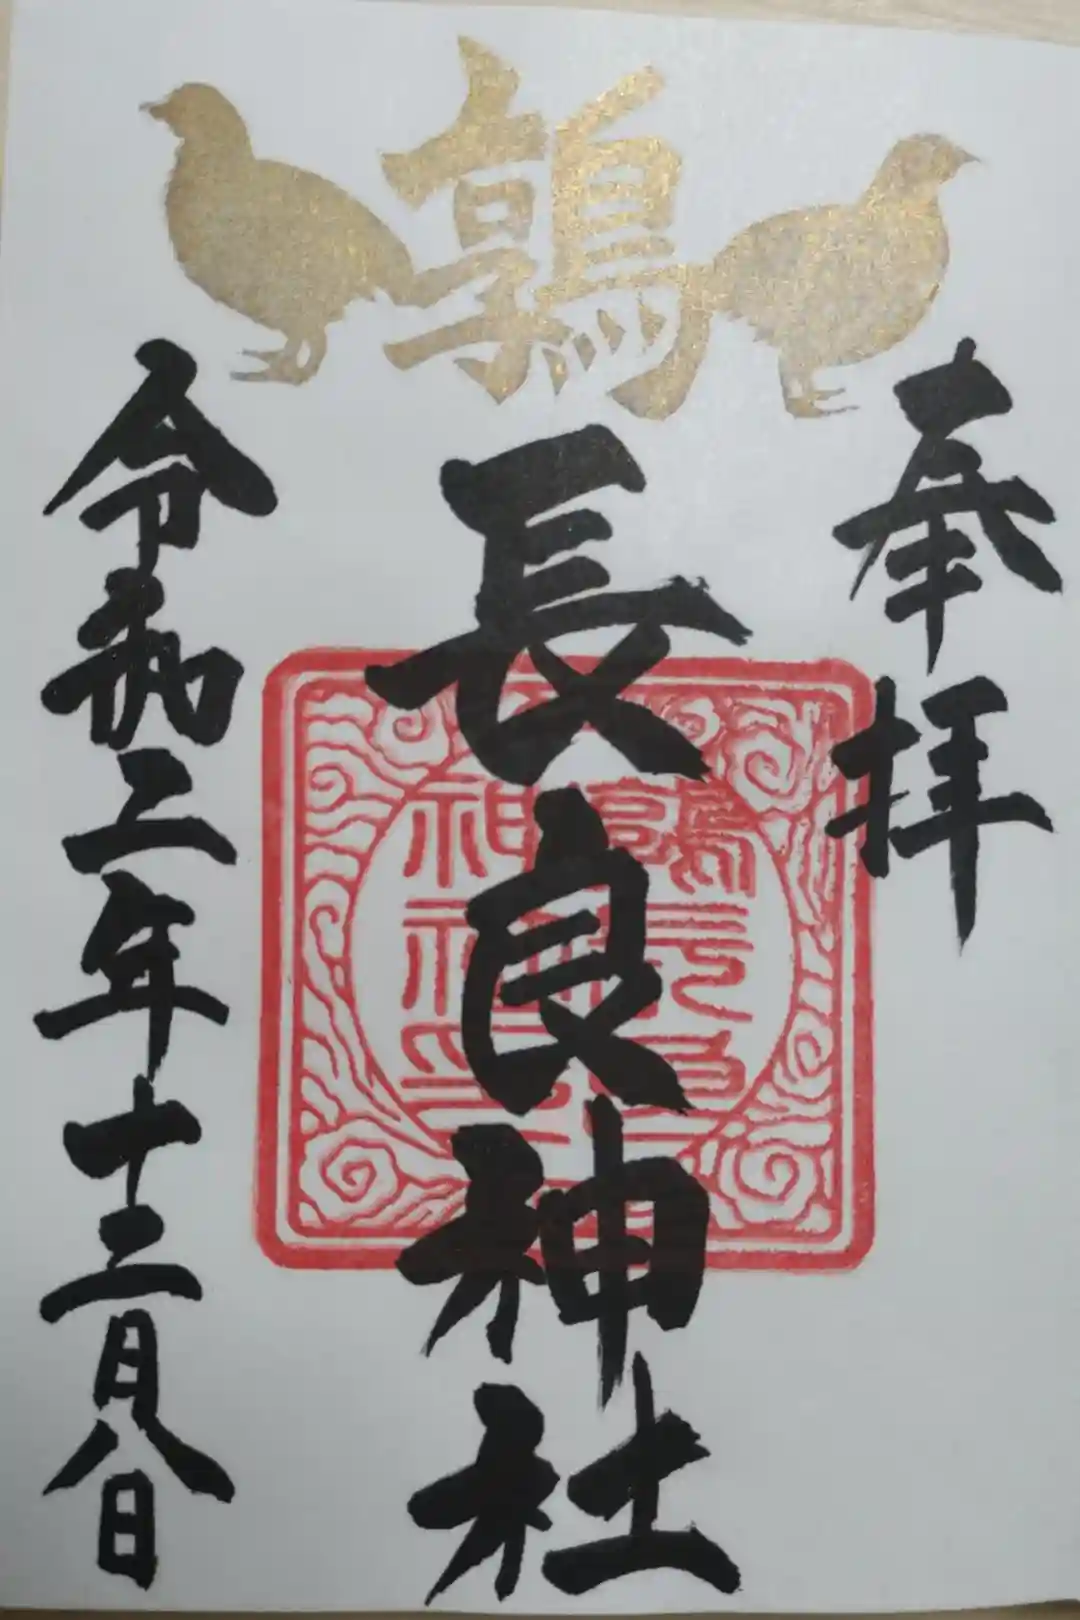 鶉
奉拝
長良神社
令和二年十二月八日